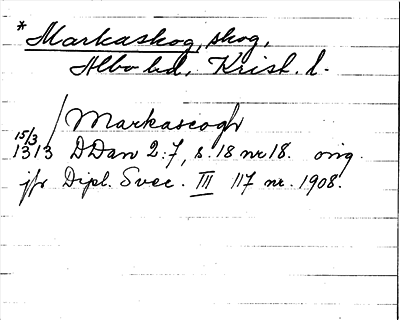 * Markaskog, skog,
Albo hd, Krist. l.
Markascogh
15/3
1313 DDan 2:7, s. 18 nr 18. orig.
jfr Dipl. Svec. III 117 nr. 1908.